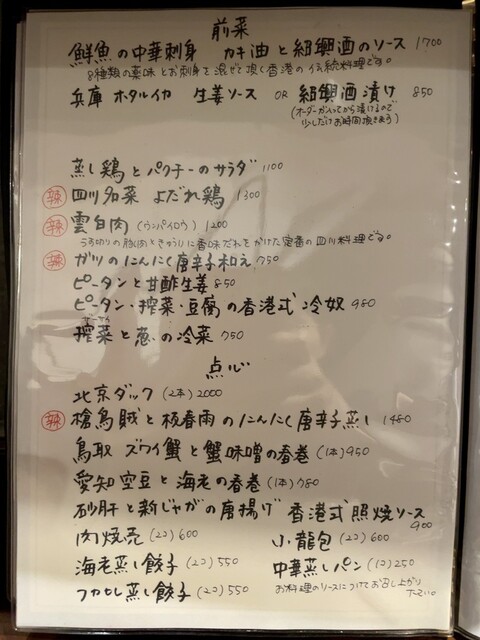 前菜
鮮魚の中華刺身 カキ油と紹興酒のソース 1700
8種類の薬味とお刺身を混ぜて頂く香港の伝統料理です。
兵庫 ホタルイカ 生姜ソース OR 紹興酒漬け 850
(オーダーが入ってから漬けるので
少しだけお時間頂きます)
蒸し鶏とパクチーのサラダ 1100
辣 四川名菜 よだれ鶏 1300
辣 雲白肉 (ウンパイロウ) 1200
うす切りの豚肉ときゅうりに香味だれをかけた定番の四川料理です。
辣 ガツのにんにく唐辛子和え 750
ピータンと甘酢生姜 850
ピータン・搾菜・豆腐の香港式冷奴 980
搾菜と葱の冷菜 750
点心
北京ダック (2本) 2000
辣 槍烏賊と板春雨のにんにく唐辛子蒸し 1480
鳥取 ズワイ蟹と蟹味噌の春巻 (1本) 950
愛知空豆と海老の春巻 (1本) 780
砂肝と新じゃがの唐揚げ 香港式照焼ソース 900
肉焼売 (2コ) 600 小龍包 (2コ) 600
海老蒸し餃子 (2コ) 550 中華蒸しパン (1コ) 250
お料理のソースにつけてお召し上がり下さい。
フカヒレ蒸し餃子 (2コ) 550